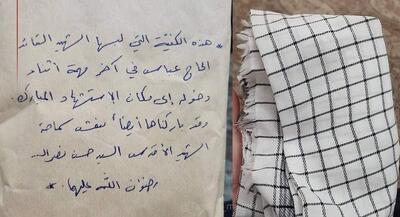 * هذه الكفية التي لبسها الشهيد القائد
الحاج عباس في آخر مهمة أثناء
دخوله إلى مكان الإستشهاد المبارك.
وقد باركناها أيضاً بنعش سماحة
الشهيد الأقدس السيد حسن نصرالله
رضوان الله عليهما. *